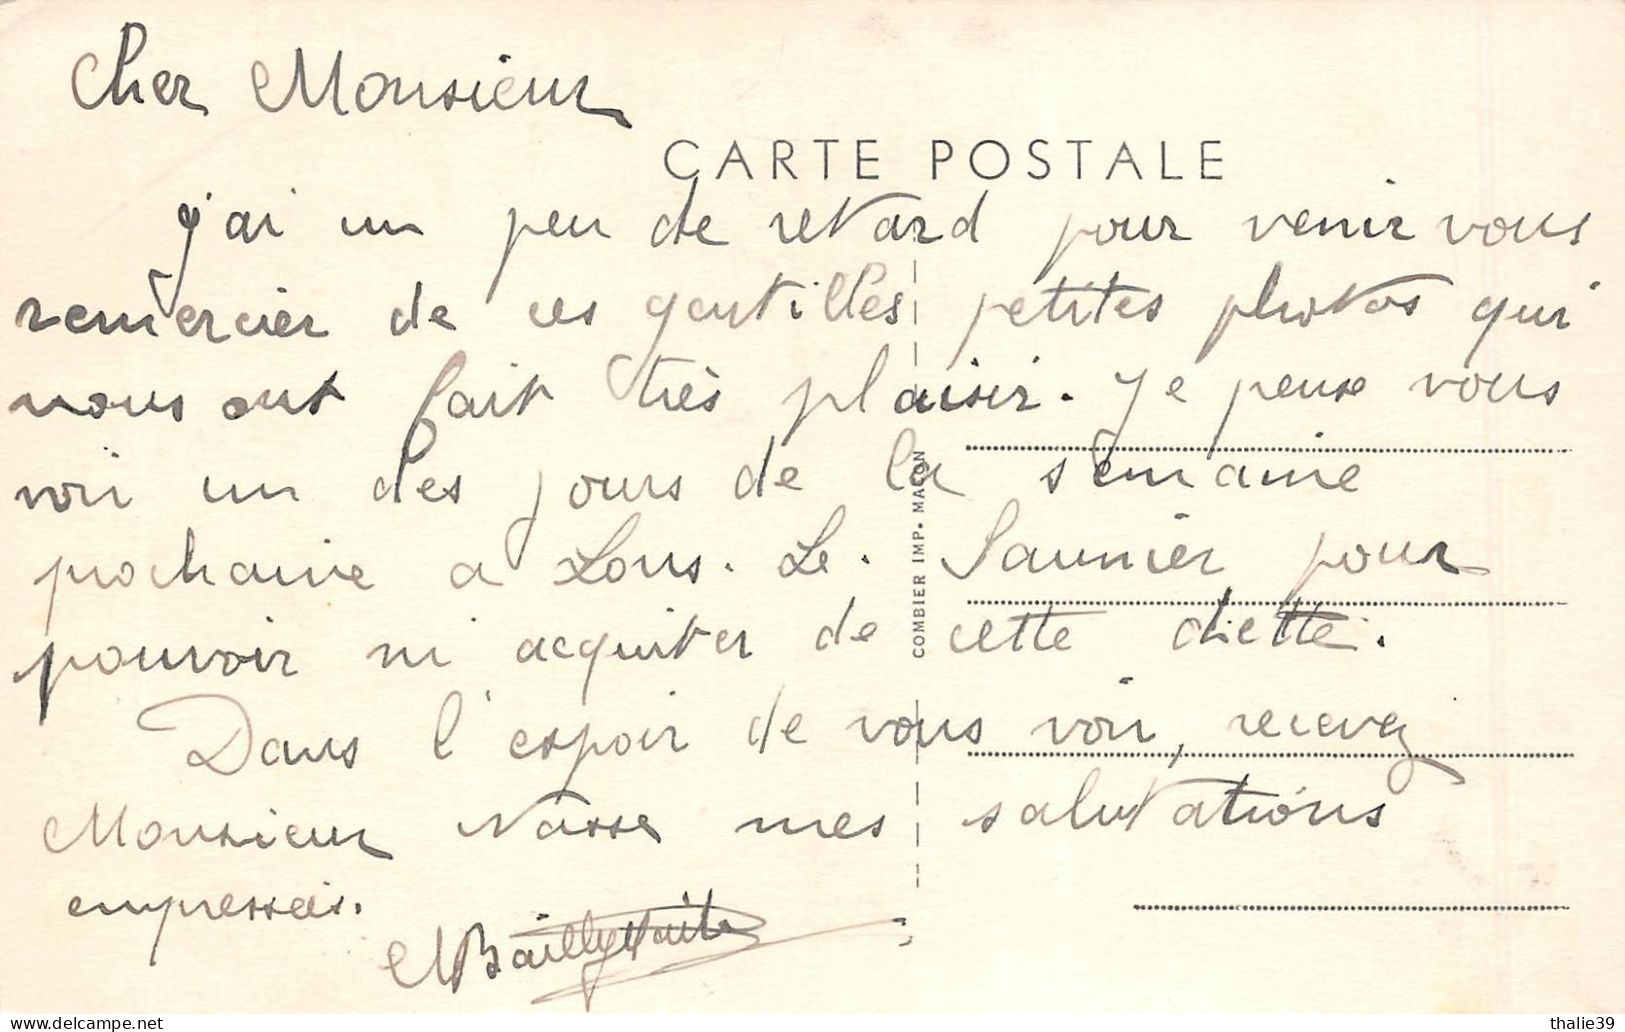 Cher Monsieur
CARTE POSTALE
J'ai un peu de retard pour venir vous
remercier de ces gentilles petites photos qui
nous ont fait très plaisir. Je peux vous
voir un des jours de la semaine
prochaine a Lons. Le. Saunier pour
pouvoir m'acquiter de cette dette.
Dans l'espoir de vous voir, recevez
Monsieur Nasse mes salutations
empressées.
COMBIER IMP. MACON
thalie39